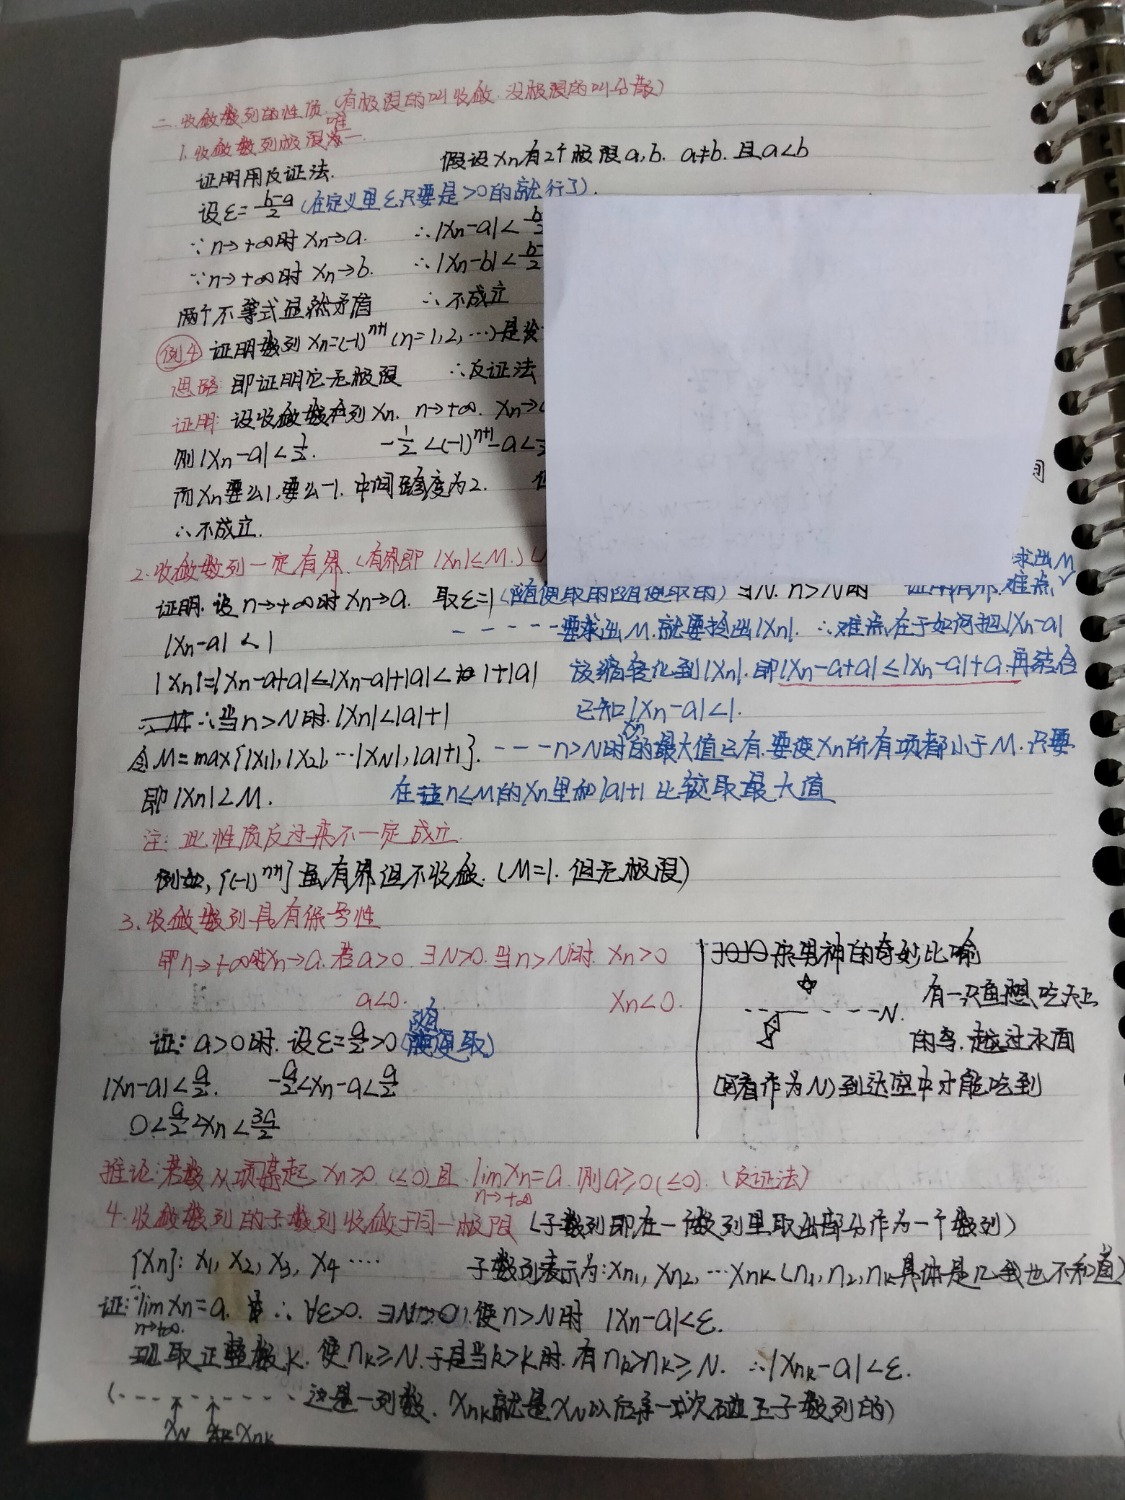 二.收敛数列的性质.(有极限的叫收敛.没极限的叫分散)
1.收敛数列极限唯一.
证明用反证法. 假设Xn有2个极限a,b. a≠b. 且a<b
设ε=b-a/2 (在定义里ε只要是>0的就行了).
∵n→+∞时Xn→a. ∴|Xn-a|<
∵n→+∞时Xn→b. ∴|Xn-b|<
两个不等式显然矛盾 ∴不成立
例4 证明数列Xn=(-1)^n+1 (n=1,2,…)是
思路: 即证明它无极限 ∴反证法
证明: 设收敛数列Xn. n→+∞. Xn→
则|Xn-a|<1/2. -1/2<(-1)^n+1-a<
而Xn要么1,要么-1. 中间跨度为2.
间
∴不成立.
2.收敛数列一定有界.(有界即|Xn|≤M.)
求出M
证明.设n→+∞时Xn→a. 取ε=1(随便取的随便取的)∃N. n>N时 证明有界.难点
|Xn-a|<1 -----要求出M.就要找出|Xn|. ∴难点在于如何把|Xn-a|
|Xn|=|Xn-a+a|≤|Xn-a|+|a|<1+|a| 转化到|Xn|.即|Xn-a+a|≤|Xn-a|+a.再结合
∴当n>N时.|Xn|<|a|+1 已知|Xn-a|<1.
令M=max{|X1|,|X2|,…|XN|,|a|+1}. ---n>N时Xn的最大值已有.要使Xn所有项都小于M.只要
即|Xn|≤M. 在n≤M的Xn里和|a|+1比较取最大值
注: 此性质反过来不一定成立.
例如,{(-1)^n+1}虽有界但不收敛.(M=1.但无极限)
3.收敛数列具有保号性
即n→+∞时Xn→a.若a>0. ∃N>0.当n>N时. Xn>0
a<0. Xn<0.
证: a>0时.设ε=a/2>0(随便取)
|Xn-a|<a/2. -a/2<Xn-a<a/2
0<a/2<Xn<3a/2
来男神的奇妙比喻
---N. 有一只鱼想吃天上
的鸟.越过水面
(看作为N)到达空中才能吃到
推论:若数从项某起Xn≥0(≤0)且lim n→+∞ Xn=a.则a≥0(≤0).(反证法)
4.收敛数列的子数列收敛于同一极限(子数列即在一个数列里取出部分作为一个数列)
{Xn}: X1, X2, X3, X4…… 子数列表示为:Xn1, Xn2, …Xnk(n1,n2,nk具体是几我也不知道)
证:lim n→+∞ Xn=a. ∴∀ε>0. ∃N>0.使n>N时 |Xn-a|<ε.
现取正整数K.使nK≥N.于是当k>K时.有nk>nK≥N. ∴|Xnk-a|<ε.
(------这是一列数. Xnk就是XN以后第一次碰到子数列的)
XN XnK